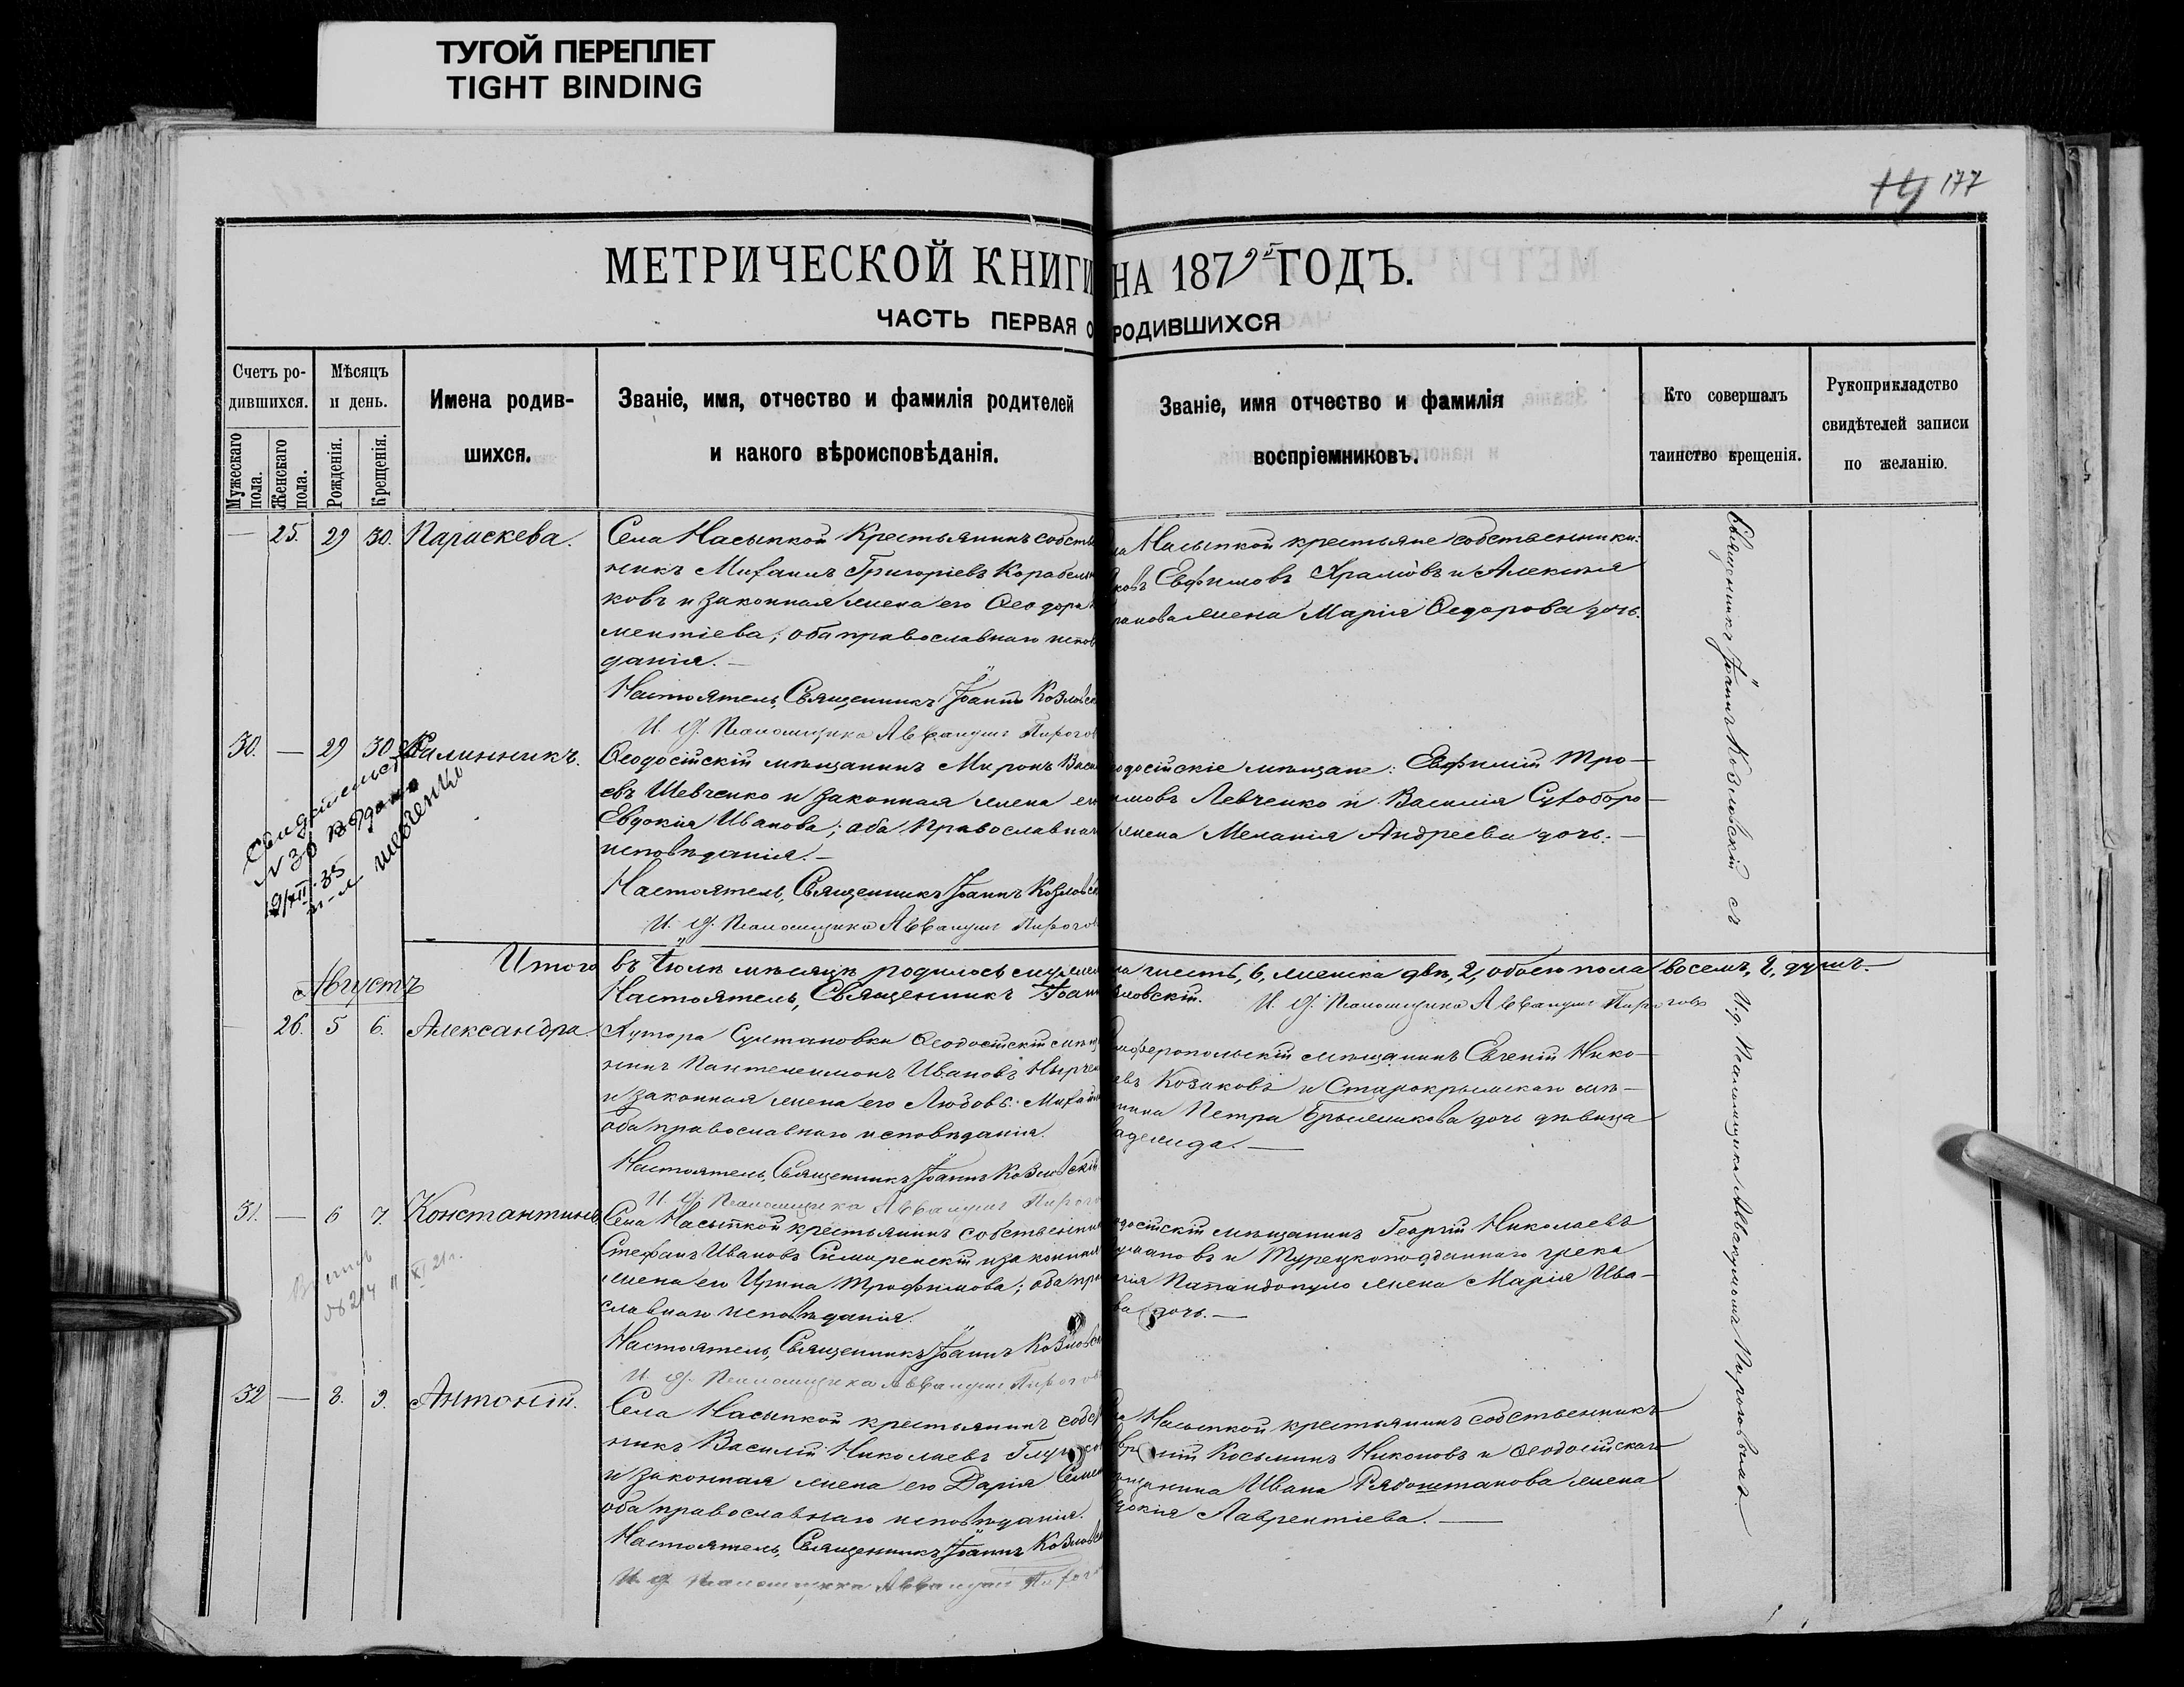 ТУГОЙ ПЕРЕПЛЕТ
TIGHT BINDING
177
МЕТРИЧЕСКОЙ КНИГИ НА 1879й ГОДЪ.
ЧАСТЬ ПЕРВАЯ О РОДИВШИХСЯ
Счетъ ро-
дившихся.
Мужескаго пола.
Женскаго пола.
Мѣсяцъ
и день.
Рожденія.
Крещенія.
Имена родив-
шихся.
Званіе, имя, отчество и фамилія родителей
и какого вѣроисповѣданія.
Званіе, имя отчество и фамилія
воспріемниковъ.
Кто совершалъ
таинство крещенія.
Рукоприкладство
свидѣтелей записи
по желанію.
— 25. 29 30. Параскева.
Села Насыпкой Крестьянинъ собств
никъ Михаилъ Григоріевъ Корабель
ковъ и законная жена его Ѳеодора
ментіева; оба православнаго испов
данія. —
Настоятель, Священникъ Іоаннъ Козловск
И. д. Псаломщика Аввакумъ Пирогов
на Насыпкой крестьяне собственники:
ковъ Евфимовъ Храмовъ и Алексѣя
ранова жена Марія Ѳедорова дочь.
30. — 29 30. Калинникъ.
Свидетельство
N 36 выдано
19/XII-35
Шевченко
Ѳеодосійскій мѣщанинъ Миронъ Васи
евъ Шевченко и законная жена ег
Евдокія Иванова; оба Православнаг
исповѣданія. —
Настоятель, Священникъ Іоаннъ Козловск
И. д. Псаломщика Аввакумъ Пирогов
одосійскіе мѣщане: Евфимій Тро-
имовъ Левченко и Василія Сухоборо-
жена Меланія Андреева дочь. —
Итого въ Іюлѣ мѣсяцѣ родилось муж. пола шесть, 6, женска двѣ, 2, обоего пола восемь, 8, душъ. —
Настоятель, Священникъ Іоаннъ Козловскій. И. д. Псаломщика Аввакумъ Пироговъ
Августъ
— 26. 5 6. Александра.
Хутора Султановки Ѳеодосійскій мѣщ
нинъ Пантелеимонъ Ивановъ Нырчен
и законная жена его Любовь Михай
оба православнаго исповѣданія.
Настоятель, Священникъ Іоаннъ Козловскій
И. д. Псаломщика Аввакумъ Пирого
мферопольскій мѣщанинъ Евгеній Нико-
евъ Козаковъ и Старокрымскаго мѣ-
нина Петра дочь дѣвица
адежда. —
31. — 6 7. Константинъ
№ 214 11 XI 21г.
Села Насыпкой крестьянинъ собственни
Стефанъ Ивановъ Симиренскій и законная
жена его Ирина Трофимова; оба пра
славнаго исповѣданія.
Настоятель, Священникъ Іоаннъ Козловск
И. д. Псаломщика Аввакумъ Пирогов
одосійскій мѣщанинъ Георгій Николаевъ
мановъ и Турецкоподданнаго грека
ргія Папандопуло жена Марія Ива-
ва дочь. —
32 — 8. 9. Антоній.
Села Насыпкой крестьянинъ собст
никъ Василій Николаевъ
и законная жена его Дарія Семен
оба православнаго исповѣданія.
Настоятель, Священникъ Іоаннъ Козловск
И. д. Псаломщика Аввакумъ Пирог
ла Насыпкой крестьянинъ собственникъ
Косьминъ Никоновъ и Ѳеодосійскаго
ѣщанина Ивана Рябоштанова жена
докія Лаврентіева. —
Священникъ Іоаннъ Козловскій съ
И. д. Псаломщика Аввакумомъ Пироговымъ.